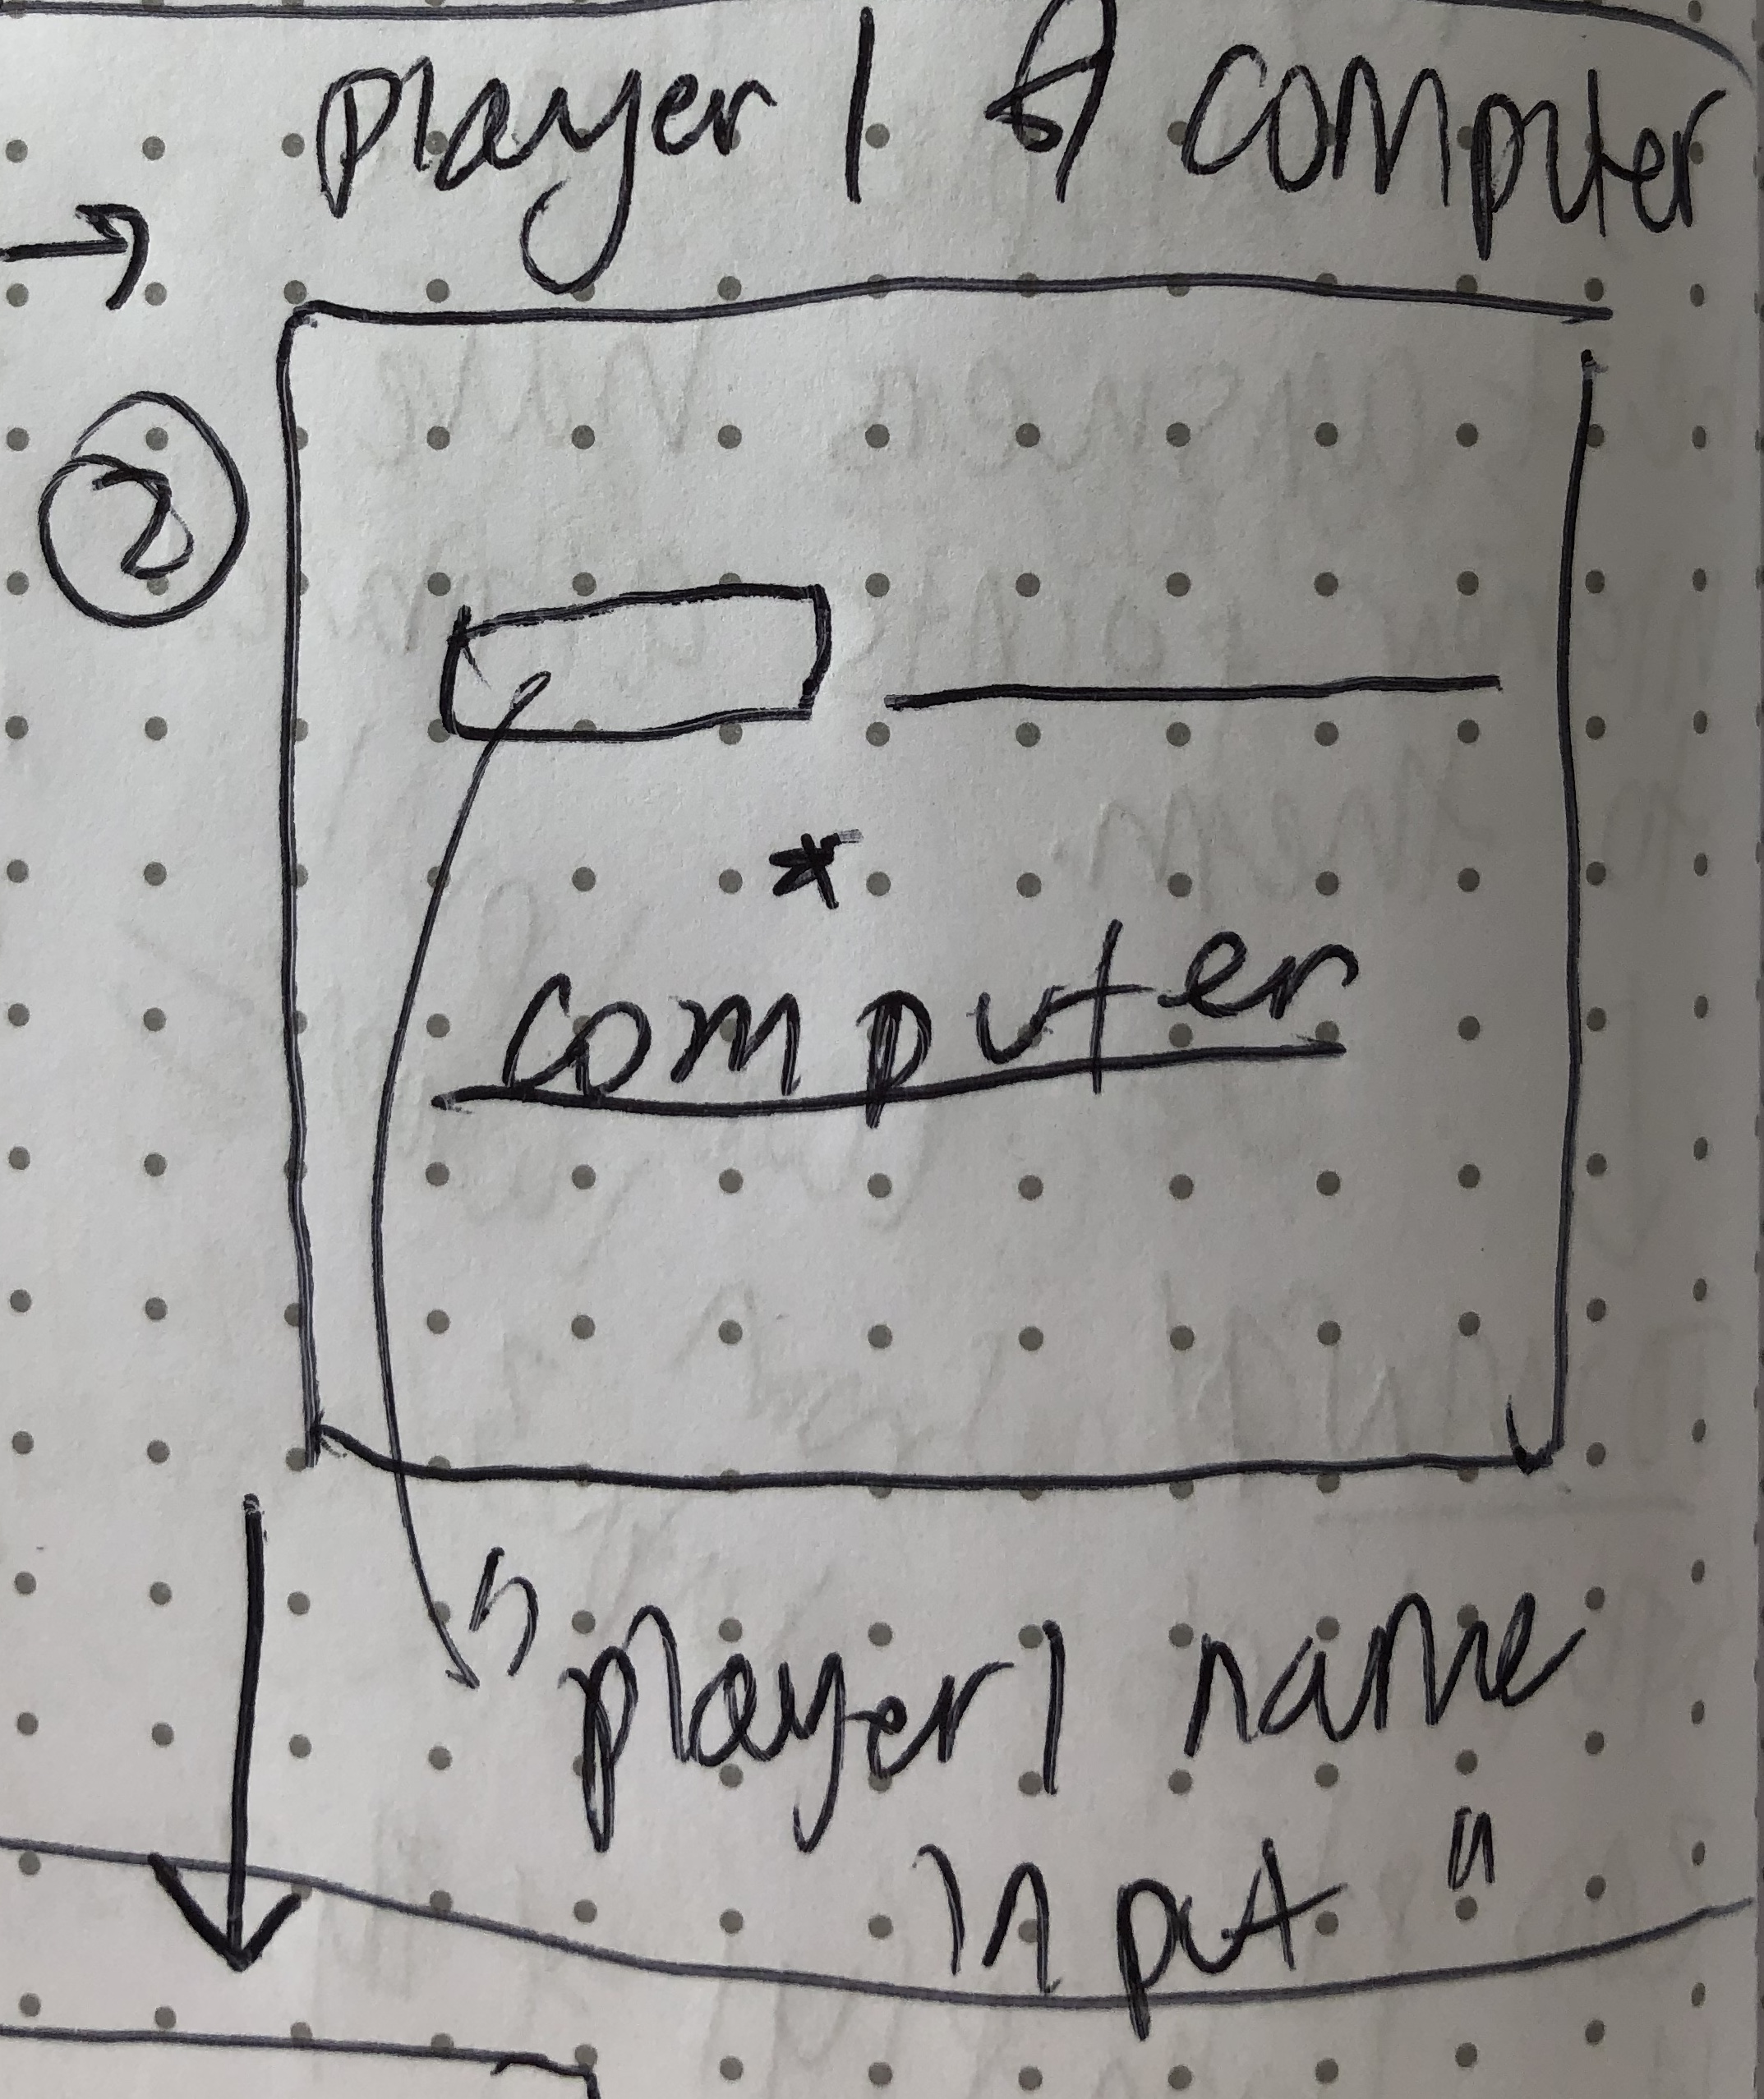 player 1 & computer
→
②
*
computer
"player 1 name
input"